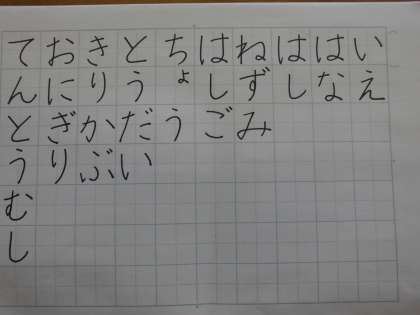 いえ
はな
はし
ねずみ
はしご
ちょう
とうだい
きりかぶ
おにぎり
てんとうむし